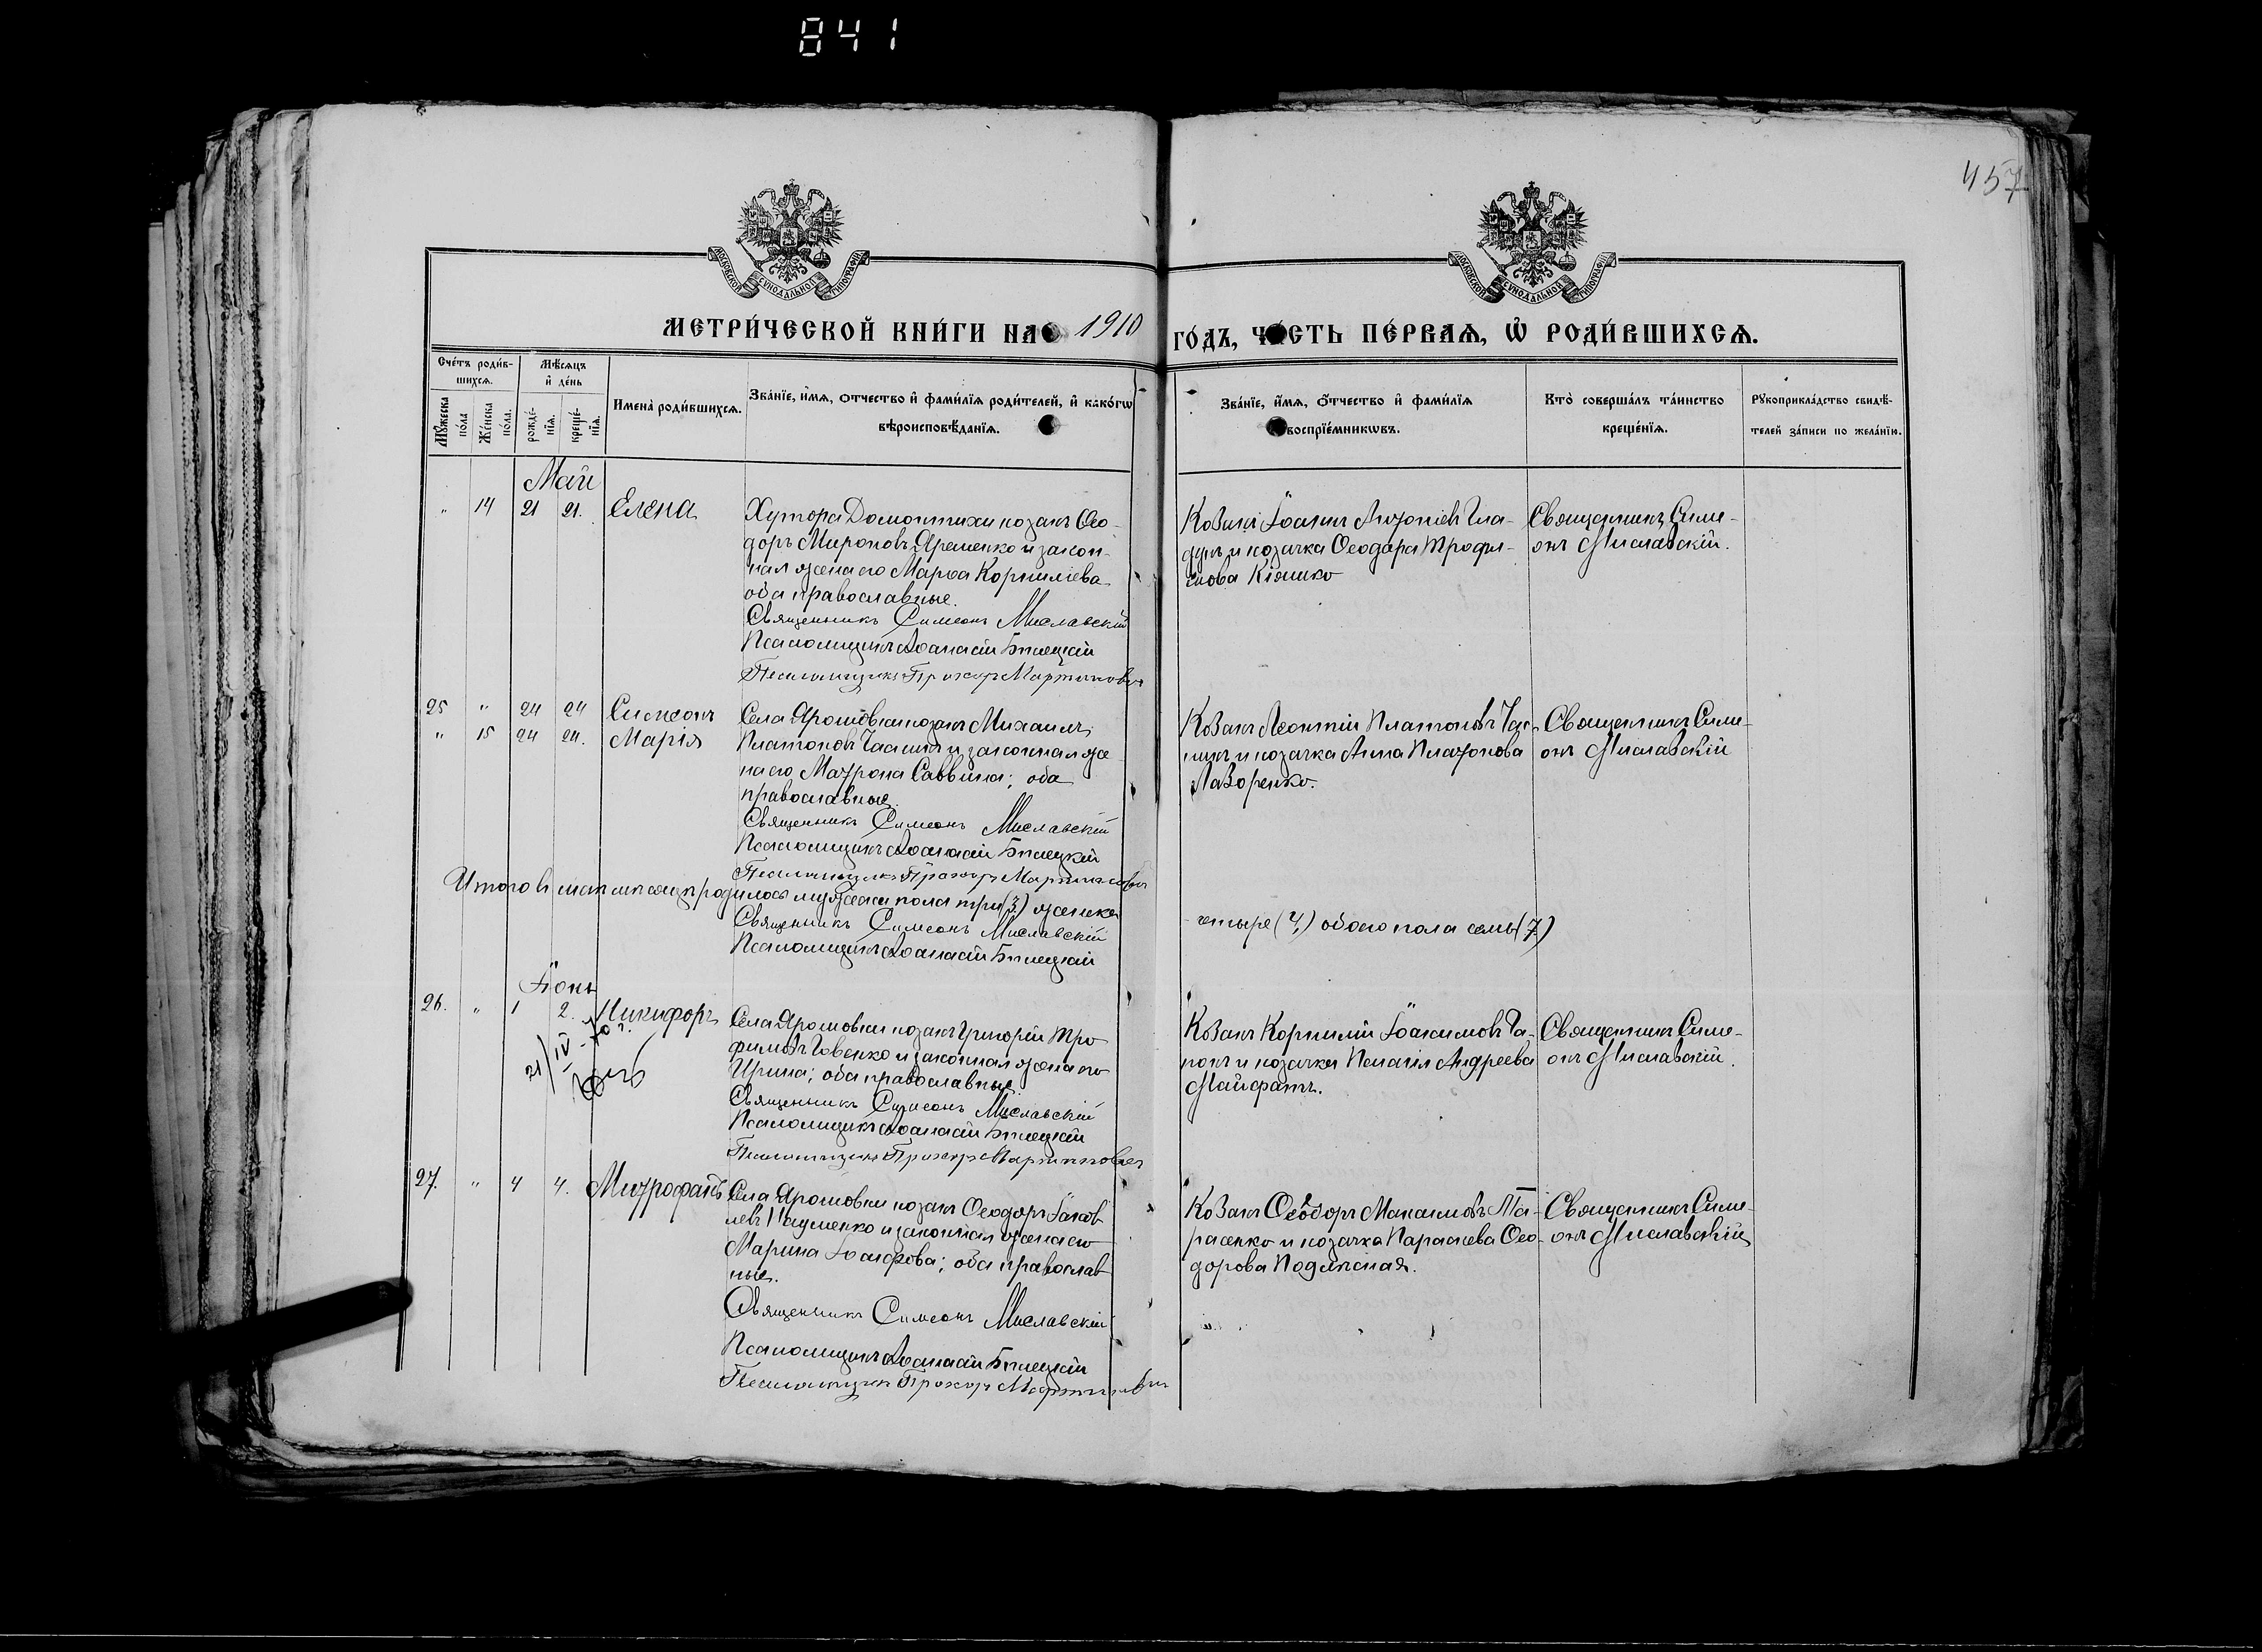 841
457
МОСКОВСКОЙ СѴНОДАЛЬНОЙ ТИПОГРАФІИ
МОСКОВСКОЙ СѴНОДАЛЬНОЙ ТИПОГРАФІИ
МЕТРИ́ЧЕСКОЙ КНИ́ГИ НА 1910 ГО́ДЪ, ЧА́СТЬ ПЕ́РВАѦ, Ѡ҆ РОДИ́ВШИХСѦ.
Сче́тъ роди́в-
шихсѧ.
Мꙋ́жеска
по́ла
Же́нска
по́ла.
Мѣ́сѧцъ
и҆ де́нь
рожде́-
нїѧ.
креще́-
нїѧ.
Имена̀ роди́вшихсѧ.
Зва́нїе, и҆́мѧ, о́тчество и҆ фами́лїѧ роди́телей, и҆ како́гѡ
вѣроисповѣ́данїѧ.
Зва́нїе, и҆́мѧ, о҆́тчество и҆ фами́лїѧ
воспрїе́мникѡвъ.
Кто̀ соверша́лъ та́инство
креще́нїѧ.
Рꙋкоприкла́дство свидѣ́-
телей за́писи по жела́нїю.
Май
" 14 21 21. Елена
Хутора Домонтихи козакъ Ѳео-
доръ Мироновъ Яременко и закон-
ная жена его Марѳа Корнилiева
оба православные.
Священникъ Симеонъ Миславскій
Псаломщикъ Аѳанасій Бѣлецкій
Псаломщикъ Прохоръ Мартиновичъ
Козакъ Іоаннъ Антоніевъ Гла-
дунъ и козачка Ѳеодора Трофи-
мова Кіяшко
Священникъ Симе-
онъ Миславскій.
25 " 24 24 Симеонъ
" 15 24 24. Марія
Села Ярошовки козакъ Михаилъ
Платоновъ и законная же-
на его Матрона Саввина; оба
православные.
Священникъ Симеонъ Миславскій
Псаломщикъ Аѳанасій Бѣлецкій
Псаломщикъ Прохоръ Мартиновичъ
Козакъ Леонтій Платоновъ
и козачка Анна Платонова
Лазоренко.
Священникъ Симе-
онъ Миславскій
Итого в маѣ мѣсяцѣ родилось мужеска пола три (3) женска
четыре (4) обоего пола семь (7)
Священникъ Симеонъ Миславскій
Псаломщикъ Аѳанасій Бѣлецкій
Іюнь
26. " 1 2. Никифоръ
21/IV-
Села Ярошовки козакъ Григорій Тро-
фимовъ Говенко и законная жена его
Ирина; оба православные.
Священникъ Симеонъ Миславскій
Псаломщикъ Аѳанасій Бѣлецкій
Псаломщикъ Прохоръ Мартиновичъ
Козакъ Корнилій Іоакимовъ Га-
понъ и козачка Пелагія Андреева
Майфатъ.
Священникъ Симе-
онъ Миславскій.
27. " 4 4. Митрофанъ
Села Ярошовки козакъ Ѳеодоръ Іаков-
левъ Науменко и законная жена его
Марина; оба православ-
ные.
Священникъ Симеонъ Миславскій
Псаломщикъ Аѳанасій Бѣлецкій
Псаломщикъ Прохоръ Мартиновичъ
Козакъ Ѳеодоръ Максимовъ Та-
расенко и козачка Параскева Ѳео-
дорова
Священникъ Симе-
онъ Миславскій